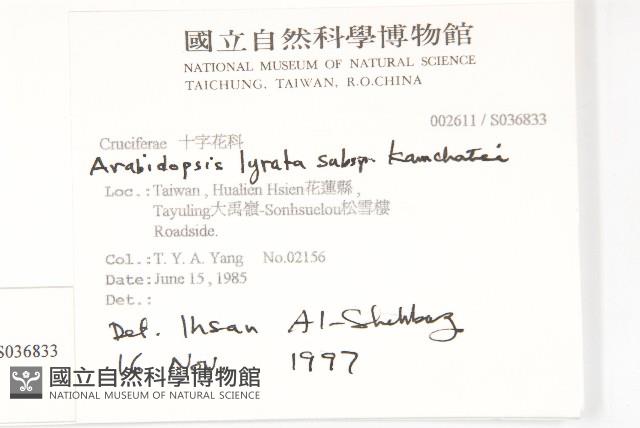 國立自然科學博物館
NATIONAL MUSEUM OF NATURAL SCIENCE
TAICHUNG, TAIWAN, R.O.CHINA
002611 / S036833
Cruciferae 十字花科
Arabidopsis lyrata subsp. kamchatei
Loc.:Taiwan , Hualien Hsien花蓮縣 ,
Tayuling大禹嶺-Sonhsuelou松雪樓
Roadside.
Col.:T. Y. A. Yang No.02156
Date:June 15 , 1985
Det.:
Det. Ihsan Al-Shehbaz
16 Nov. 1997
S036833
國立自然科學博物館
NATIONAL MUSEUM OF NATURAL SCIENCE